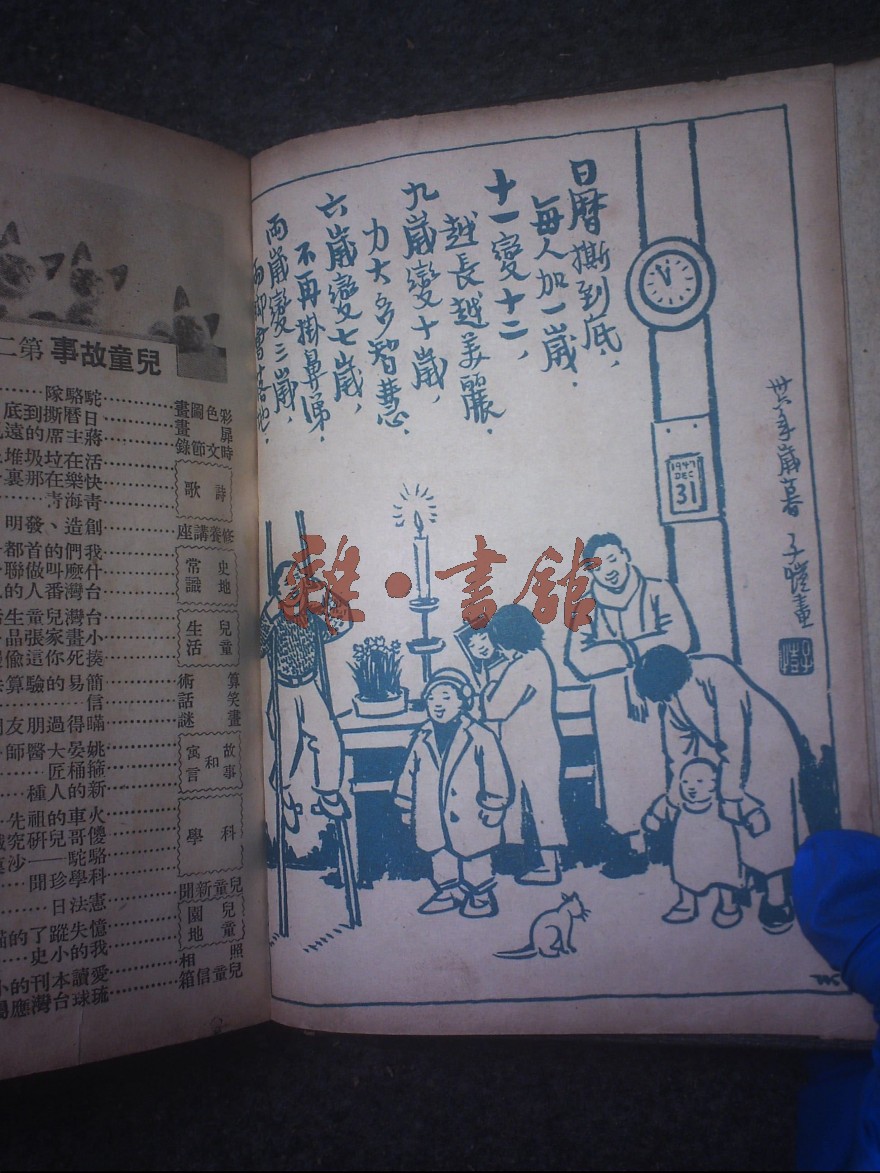 日曆撕到底，
每人加一歲．
十一變十二，
越長越美麗．
九歲變十歲，
力大多智慧．
六歲變七歲，
不再掛鼻涕．
兩歲變三歲，
兩脚會落地．
1947
DEC
31
卅六年歲暮 子愷畫
子愷
雜·書館
兒童故事 第二
彩色圖畫……駱駝隊
扉畫……日曆撕到底
時文節錄……蔣主席的遠
詩歌
活在垃圾堆
快樂在那裏
青海青
修養講座……創造、發明
史地常識
我們的首都
什麽叫做聯
台灣番人的
兒童生活
台灣兒童生活
小畫家張晶
揍死你這偷
算術……簡易的驗算
笑話……信
謎畫……瞞得過朋友
故事和寓言
姚晏大醫師
箍桶匠
新的人種
科學
火車的祖先
儍哥兒研究
駱駝——沙
科學珍聞
兒童新聞……憲法日
兒童園地
憶失蹤了的貓
我的小史
照相……愛讀本刊的小
兒童信箱……琉球台灣應